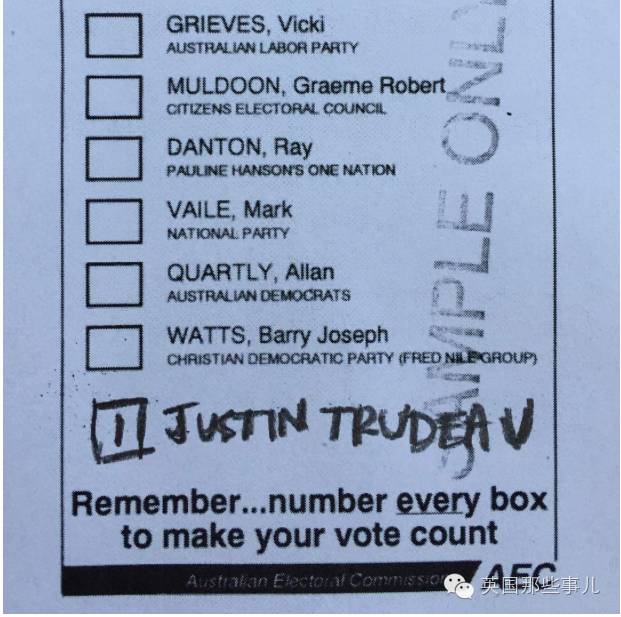 GRIEVES, Vicki
AUSTRALIAN LABOR PARTY
MULDOON, Graeme Robert
CITIZENS ELECTORAL COUNCIL
DANTON, Ray
PAULINE HANSON'S ONE NATION
VAILE, Mark
NATIONAL PARTY
QUARTLY, Allan
AUSTRALIAN DEMOCRATS
WATTS, Barry Joseph
CHRISTIAN DEMOCRATIC PARTY (FRED NILE GROUP)
SAMPLE ONLY
1 JUSTIN TRUDEAU
Remember...number every box
to make your vote count
Australian Electoral Commission AEC
英国那些事儿